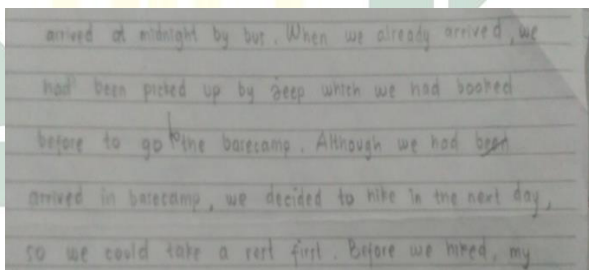 arrived at midnight by bus. When we already arrived, we
had been picked up by jeep which we had booked
before to go to the basecamp. Although we had been
arrived in basecamp, we decided to hike in the next day,
so we could take a rest first. Before we hiked, my